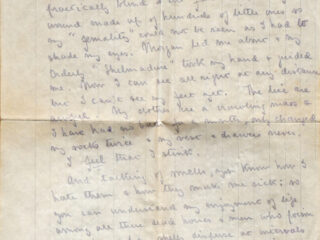 practically blind & the
wound made up of hundreds of little ones so
my "geniality" could not be seen as I had to
shade my eyes. Morgan led me about & my
Orderly "Skelmadine" took my hand & guided
me. Now I can see all right at any distance
but I can't see my feet yet. The lice are
My clothes are a crawling mass &
I have had no for a month, only changed
my socks twice & my vest & drawers never.
I feel that I stink.
And talking of smells, you know how I
hate them & how they make me sick; so
you can understand my enjoyment of life
among all these dead horses & men who form
smelly at intervals